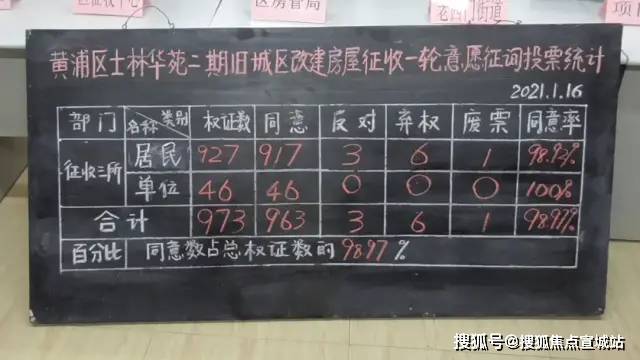 区征收中心
区房管局
老西门街道
黄浦区士林华苑二期旧城区改建房屋征收一轮意愿征询投票统计
2021.1.16
部门 名称 类别 权证数 同意 反对 弃权 废票 同意率
征收三所 居民 927 917 3 6 1 98.92%
单位 46 46 0 0 0 100%
合计 973 963 3 6 1 98.97%
百分比 同意数占总权证数的98.97%
搜狐号@搜狐焦点宣城站